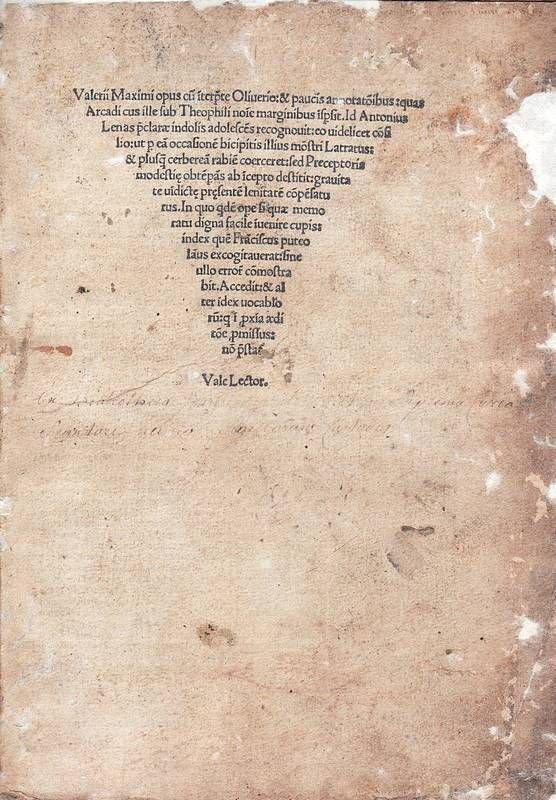 Valerii Maximi opus cū īterp̄te Oliuerio: & paucīs annotatōibus :quas
Arcadi cus ille sub Theophili noīe marginibus īspsit. Id Antonius
Lenas p̄claræ indolis adolescēs recognouit: eo uidelicet cōsi
lio: ut p eā occasionē bicipitis illius mōstri Latratus:
& plusq̄ cerbereā rabiē coerceret: sed Preceptoris
modestię obtēpās ab īcepto destitit: grauita
te uīdictę pręsentē lenitatē cōpēsatu
rus. In quo qdē ope si quæ memo
ratu digna facile īuenire cupis:
index quē Frāciscus puteo
lāus excogitauerat: sine
ullo erroř cōmostra
bit. Accedit: & al
ter īdex uocablo
rū: q ī ꝓxīa ædi
tōe ꝓmissus:
nō p̄stat
Vale Lector.